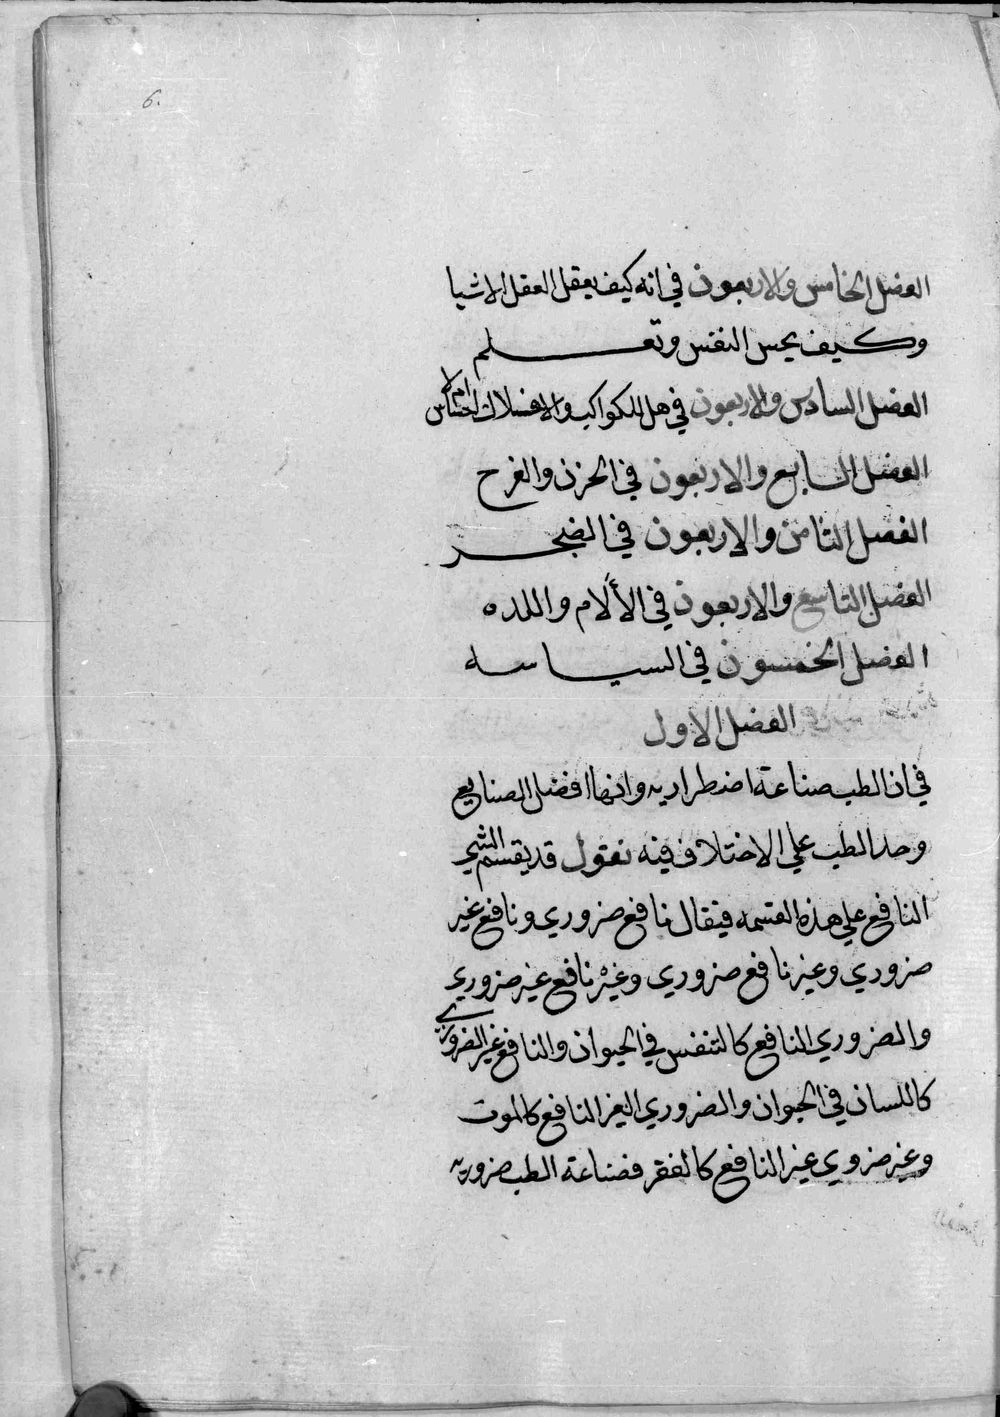 6.
الفصل الخامس والاربعون في انه كيف يعقل العقل الاشيا
وكيف يحس النفس وتعلم
الفصل السادس والاربعون في هل للكواكب والافلاك احساس ام لا
الفصل السابع والاربعون في الحزن والفرح
الفصل الثامن والاربعون في الضجر
الفصل التاسع والاربعون في الألام واللذه
الفصل الخمسون في السياسه
الفصل الاول
في ان الطب صناعة اضطراريه وانها افضل الصنايع
وحد الطب علي الاختلاف فيه نقول قد يقسم الشي
النافع علي هذه القسمه فيقال نافع ضروري ونافع غير
ضروري وغير نافع ضروري وغير نافع غير ضروري
والضروري النافع كالتنفس في الحيوان والنافع غير الضروري
كاللسان في الحيوان والضروري الغير النافع كالموت
وغير ضروي غير النافع كالفقر فصناعة الطب ضروريه